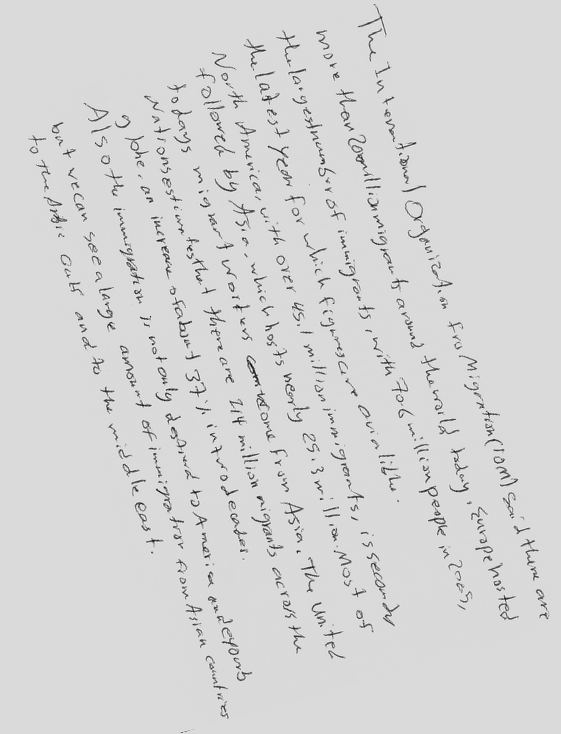 The International Organization fro Migration (IOM) said there are
more than 200 million migrants around the world today, Europe hosted
the largest number of immigrants, with 70.6 million people in 2005,
the latest year for which figures are avialible.
North America, with over 45.1 million immigrants, is second
followed by Asia, which hosts nearly 25.3 million. Most of
todays migrant workers come from Asia. The United
Nations estimates that there are 214 million migrants across the
globe, an increase of about 37% in two decades.
Also the immigration is not only desired to America and
but we can see a large amount of immigration from Asian countries
to the Arabic Gulf and to the middle east.